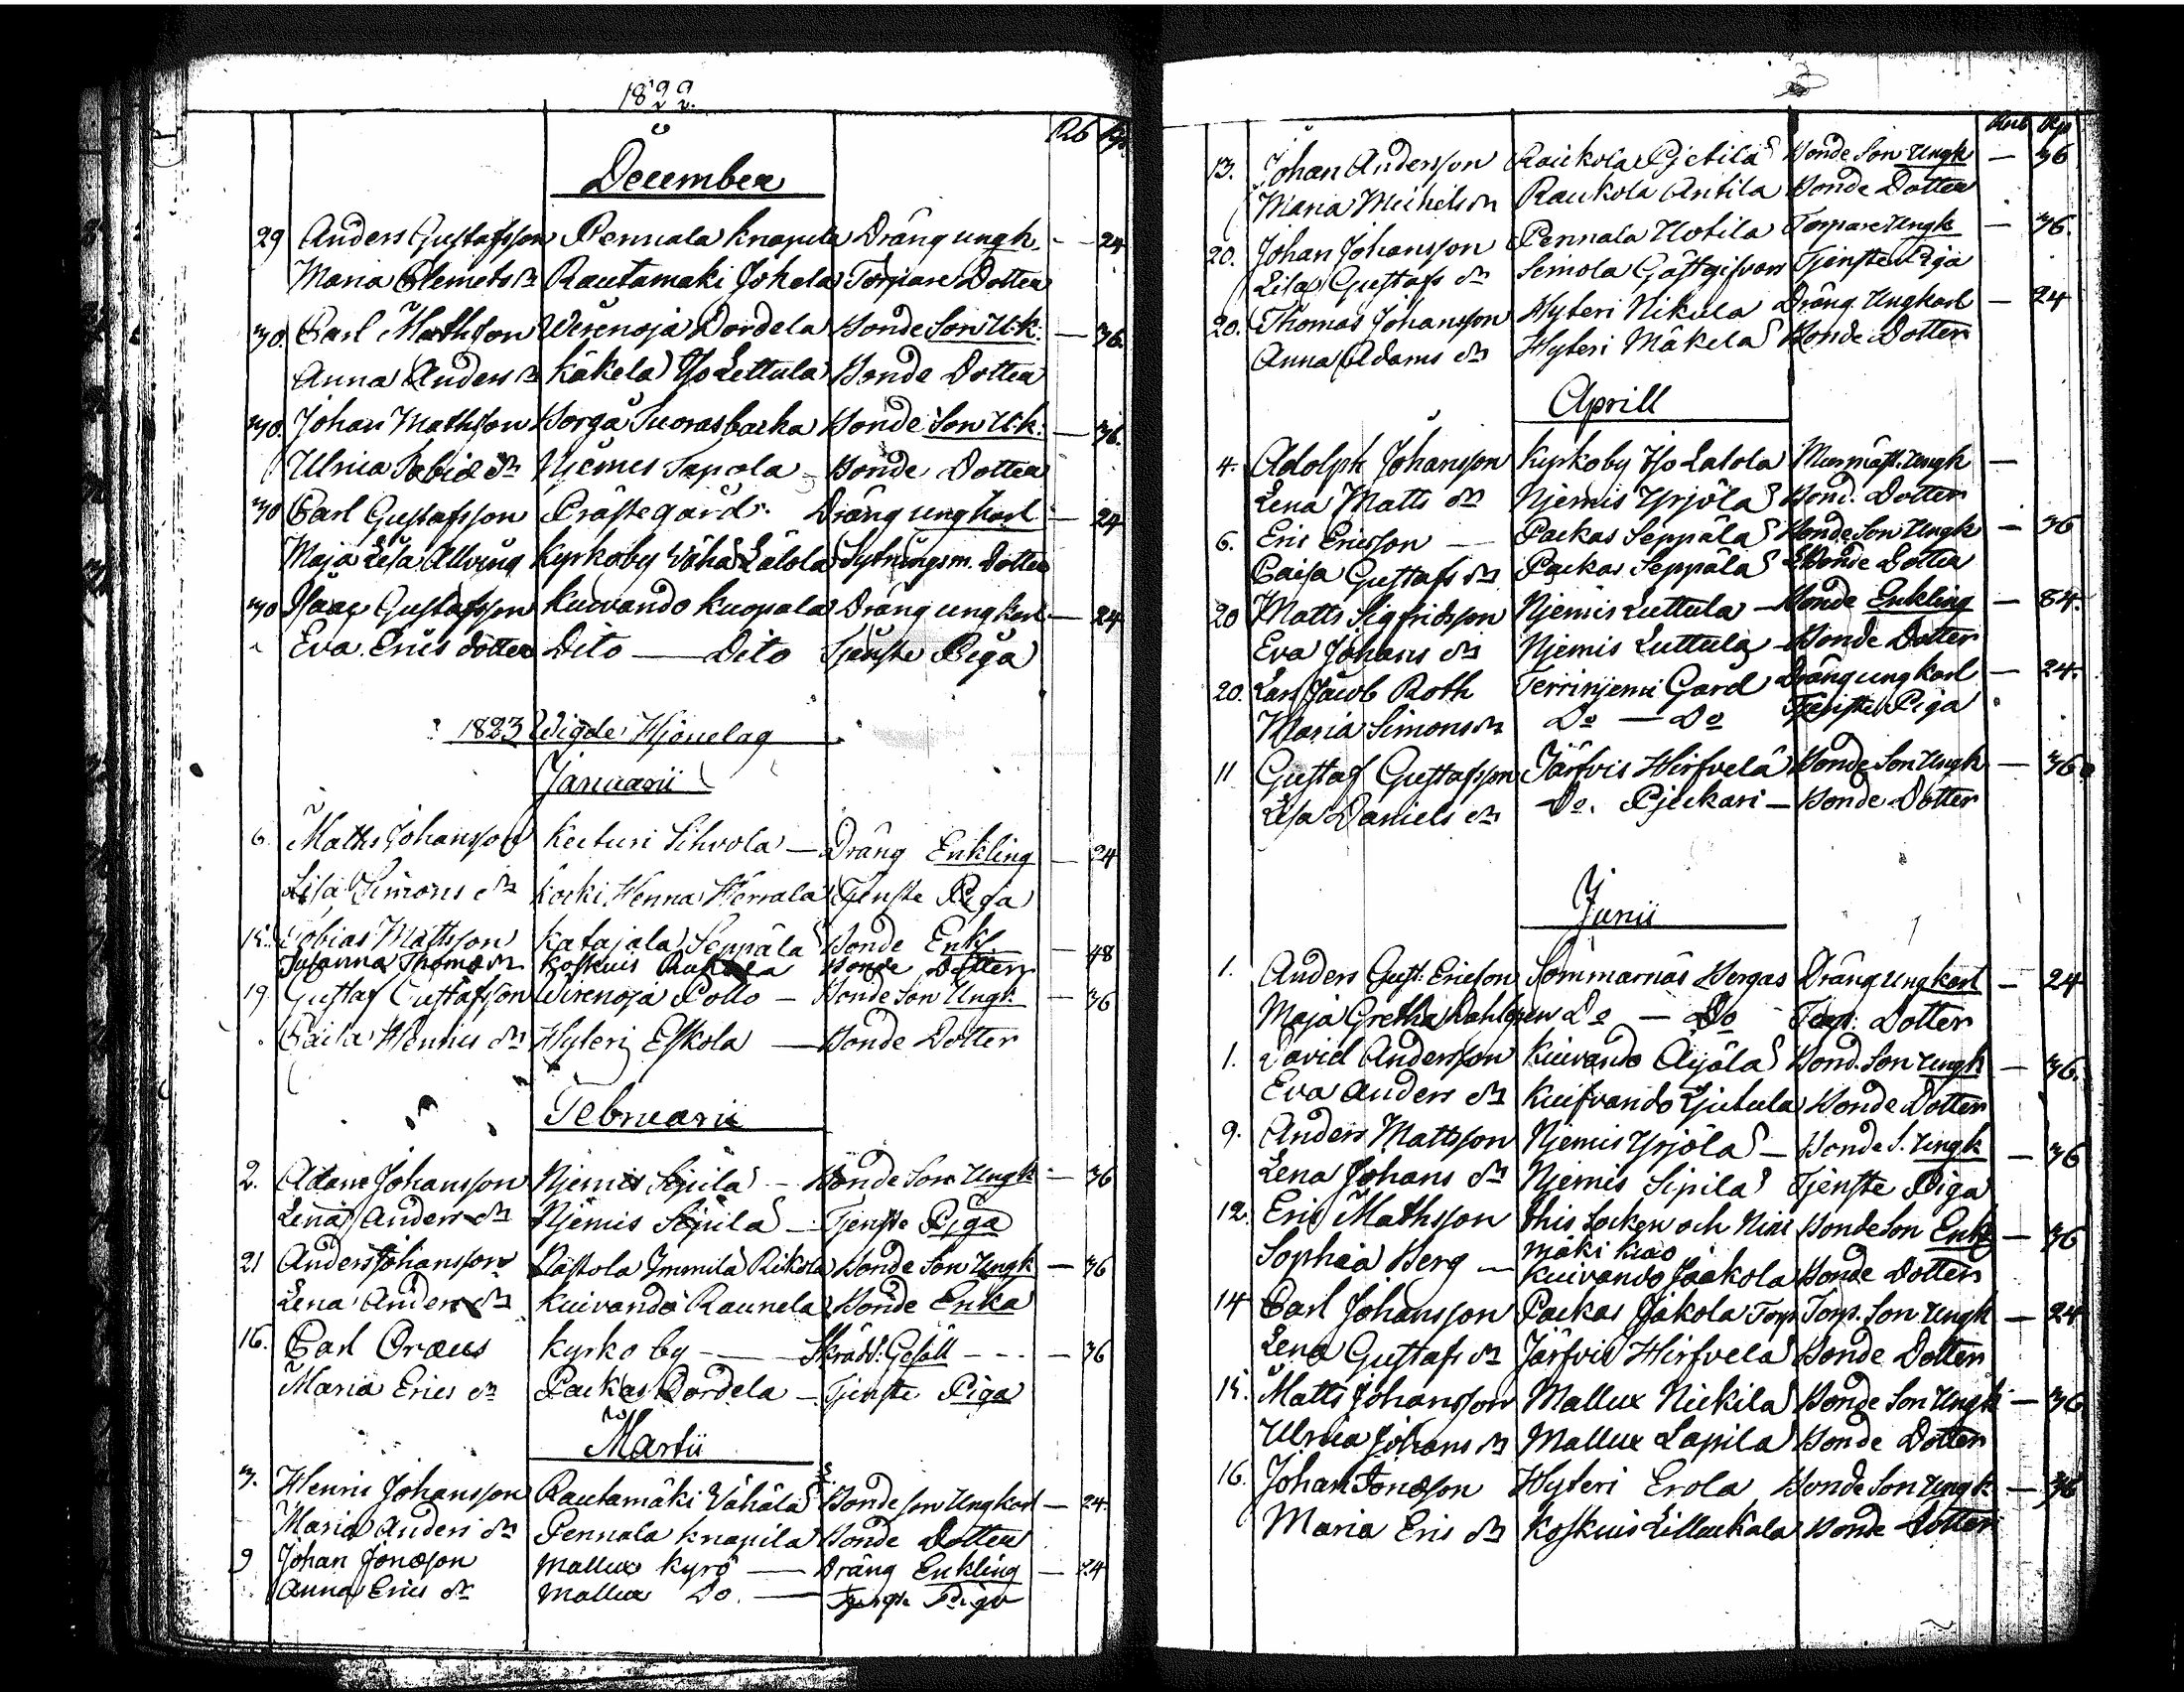 1822.
Rb kp.
December
29 Anders Gustafsson Pennala Knapila Dräng ungk. — 24
Maria Clemets dr Rautamaki Johela Torpare Dotter
30. Carl Mathsson Wirenoja Dordela Bonde Son U:k: — 36.
Anna Anders dr Käkelä Yso Lettula Bonde Dotter
30. Johan Mathsson Borgå Suorasbacka Bonde Son U:k: — 36.
Ulrica Tobiæ dr Njemis Sapola – Bonde Dotter
30 Carl Gustafsson Prästegård. Dräng ungkarl — 24
Maja Lisa Allring Kyrkoby Wähä Lalola Sytningsm. Dotter
30 Isaac Gustafsson Kuivando Kuopala Dräng ungkarl — 24
Eva Erics dotter Dito — Dito Tjenste Piga
1823 Wigde Hjonelag
Januarii
6. Matts Johansson Keituri Sihvola — Dräng Enkling — 24
Lisa Simons dr Koski Henna Herrala Tjenste Piga
15. Tobias Mattsson Katajala Seppälä Bonde Enkl. — 48
Susanna Thomæ dr Koskuis Bonde Dotter
19 Gustaf Gustafsson Wirenoja Pollo — Bonde Son Ungk. — 36
Caisa Henrics dr Hyteri Eskola — Bonde Dotter
Februarii
2. Adam Johansson Njemis Sipilä – Bonde Son Ungk — 36
Lena Anders dr Njemis Sipilä – Tjenste Piga
21 Anders Johansson Rästola Immilä Rikola Bonde Son Ungk — 36
Lena Anders dr Kuivando Raunela Bonde Enka
16. Carl Oræus Kyrko by — Skrädd: Gesäll — 36
Maria Erics dr Packas Dordela – Tjenste Piga
Martii
3. Henric Johansson Rautamäki Vähälä Bonde son Ungkarl — 24
Maria Anders dr Pennala Knapila Bonde Dotter
9 Johan Jonæson Mallux Kyrö — Dräng Enkling — 24
Anna Erics dr Mallux Do. — Tjenste Piga
Rub Kp
13. Johan Andersson Raukola Pietilä Bonde Son Ungk — 36
Maria Michels dr Raukola Antila Bonde Dotter
20. Johan Johansson Pennala Uotila Torpare Ungk — 36.
Lisa Gustafs dr Seinola Gästgifvars Tjenste Piga
20. Thomas Johansson Hyteri Nikula Dräng Ungkarl — 24
Anna Adams dr Hyteri Mäkelä Bonde Dotter
Aprill
4. Adolph Johansson Kyrkoby Yso Lalola Murmäst. Ungk —
Lena Matts dr Njemis Yrjölä Bond. Dotter
6. Eric Ericsson — Packas Seppälä Bonde Son Ungk — 36
Caisa Gustafs dr Packas Seppälä Bonde Dotter
20 Matts Sigfridsson Njemis Luttula – Bonde Enkling — 84.
Eva Johans dr Njemis Luttula – Bonde Dotter
20. Carl Jacob Roth Terrinjemi Gard Dräng ungkarl — 24.
Maria Simons dr Do — Do Tjenste Piga
11 Gustaf Gustafsson Järfvis Hirfvelä Bonde Son Ungk — 36
Lisa Daniels dr Do. Pjukari — Bonde Dotter
Junii
1. Anders Gust: Ericson Sommarnäs Bergas Dräng ungkarl — 24
Maja Gretha Dahlgren Do — Do Torp: Dotter
1. David Andersson Kuivando Äijälä Bond. Son Ungk — 36.
Eva Anders dr Kuifvando Gjutula Bonde Dotter
9. Anders Mattsson Njemis Yrjölä – Bonde S. Ungk — 36
Lena Johans dr Njemis Sipilä Tjenste Piga
12. Eric Mathsson Ithis Socken och Nini Bonde Son Enkl — 36
mäki Kuo
Sophia Berg — Kuivando Jaakola Bonde Dotter
14 Carl Johansson Packas Jakola Torp. Torp. Son Ungk — 24
Lena Gustafs dr Järfvis Hirfvelä Bonde Dotter
15. Matts Johansson Mallux Nickilä Bonde Son Ungk — 36
Ulrica Johans dr Mallux Lapila Bonde Dotter
16. Johan Jonæson Hyteri Erola Bonde Son Ungk — 36
Maria Eris dr Koskuis Lillukala Bonde Dotter